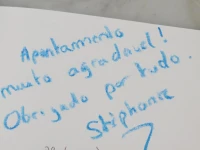 Apontamento
muito agradável!
Obrigado por tudo.
Stéphanie